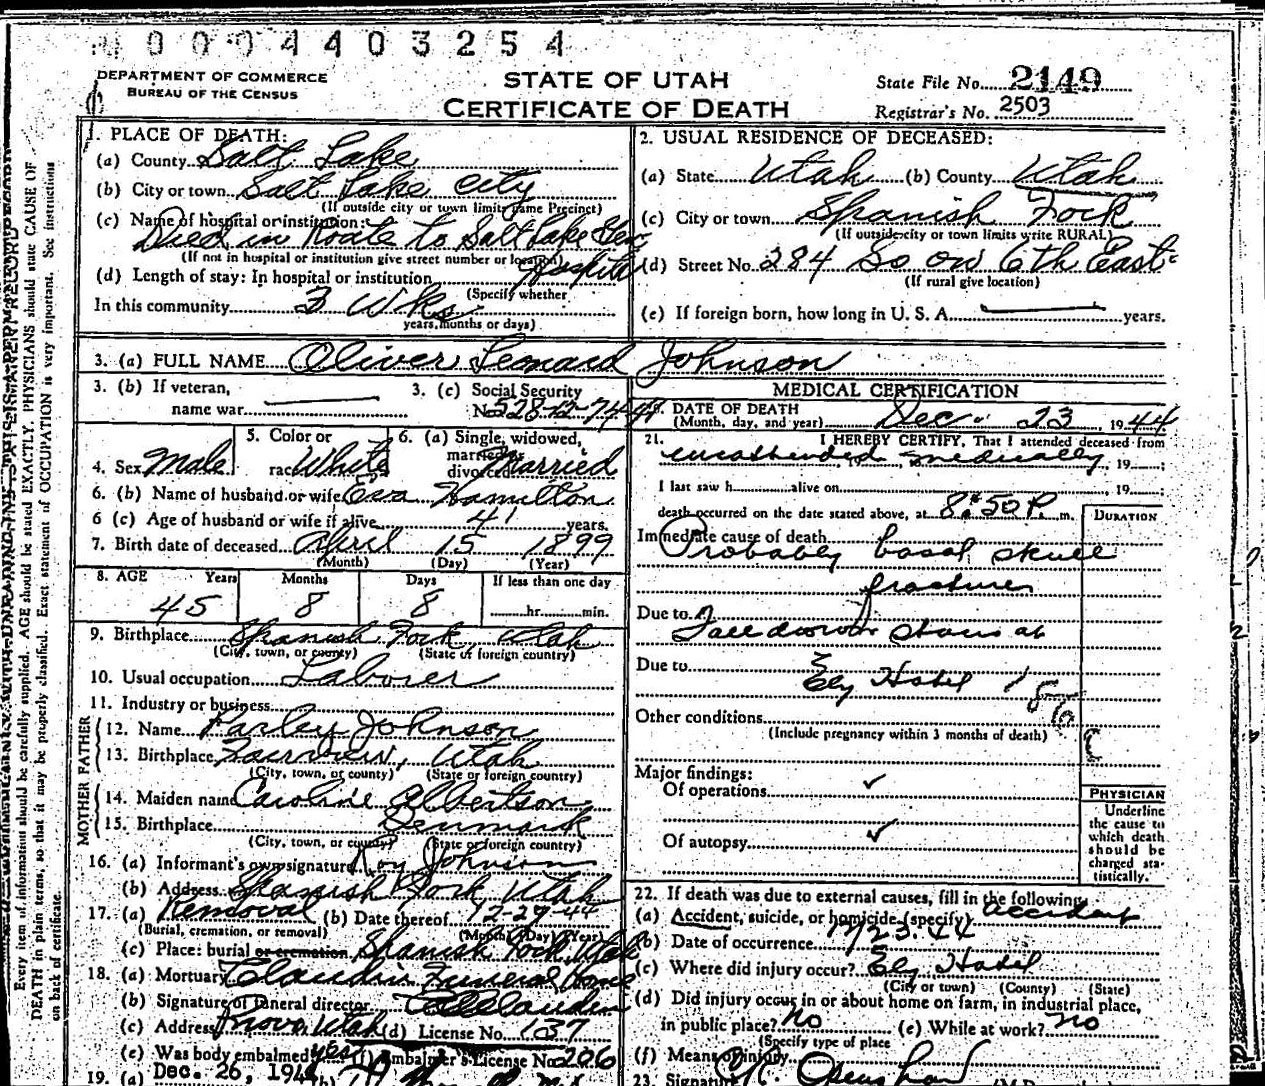 0004403254
DEPARTMENT OF COMMERCE
BUREAU OF THE CENSUS
STATE OF UTAH
CERTIFICATE OF DEATH
State File No. 2149
Registrar's No. 2503
1. PLACE OF DEATH:
(a) County Salt Lake
(b) City or town Salt Lake City
(If outside city or town limits name Precinct)
(c) Name of hospital or institution:
Died in Route to Salt Lake Gen
Hospital
(If not in hospital or institution give street number or location)
(d) Length of stay: In hospital or institution
(Specify whether
In this community 3 Wks
years, months or days)
2. USUAL RESIDENCE OF DECEASED:
(a) State Utah (b) County Utah
(c) City or town Spanish Fork
(If outside city or town limits write RURAL)
(d) Street No. 284 So on 6th East
(If rural give location)
(e) If foreign born, how long in U. S. A. years.
3. (a) FULL NAME Oliver Leonard Johnson
3. (b) If veteran,
name war
3. (c) Social Security
No. 528-12-744
4. Sex Male
5. Color or
race White
6. (a) Single, widowed,
married or
divorced Married
6. (b) Name of husband or wife Eva Hamilton
6 (c) Age of husband or wife if alive 41 years.
7. Birth date of deceased April 15 1899
(Month) (Day) (Year)
8. AGE Years Months Days If less than one day
45 8 8 hr. min.
9. Birthplace Spanish Fork, Utah
(City, town, or county) (State or foreign country)
10. Usual occupation Laborer
11. Industry or business
FATHER
12. Name Parley Johnson
13. Birthplace Fairview, Utah
(City, town, or county) (State or foreign country)
MOTHER
14. Maiden name Caroline Elbertson
15. Birthplace Denmark
(City, town, or county) (State or foreign country)
16. (a) Informant's own signature Roy Johnson
(b) Address Spanish Fork Utah
17. (a) Removal (b) Date thereof 12-29-44
(Burial, cremation, or removal) (Month) (Day) (Year)
(c) Place: burial or cremation Spanish Fork, Utah
18. (a) Mortuary Claudin Funeral Home
(b) Signature of funeral director Claudin
(c) Address Provo, Utah (d) License No. 137
(e) Was body embalmed yes (f) Embalmer's License No. 206
19. (a) Dec. 26, 194 (b)
MEDICAL CERTIFICATION
DATE OF DEATH
(Month, day, and year) Dec. 23, 1944
21. I HEREBY CERTIFY, That I attended deceased from
unattended medically, 19 ;
I last saw h alive on , 19 ;
death occurred on the date stated above, at 8:50 P. m.
DURATION
Immediate cause of death
Probably basal skull
fracture
Due to
Fall down stairs at
Due to
Ely Hotel
Other conditions
(Include pregnancy within 3 months of death)
Major findings:
Of operations
Of autopsy
PHYSICIAN
Underline
the cause to
which death
should be
charged sta-
tistically.
22. If death was due to external causes, fill in the following:
(a) Accident, suicide, or homicide (specify) accident
(b) Date of occurrence 12/23 44
(c) Where did injury occur? Ely Hotel
(City or town) (County) (State)
(d) Did injury occur in or about home on farm, in industrial place,
in public place? no (e) While at work? no
(Specify type of place
(f) Means of injury
23. Signature (M.D.
Every item of information should be carefully supplied. AGE should be stated EXACTLY. PHYSICIANS should state CAUSE OF
DEATH in plain terms, so that it may be properly classified. Exact statement of OCCUPATION is very important. See instructions
on back of certificate.